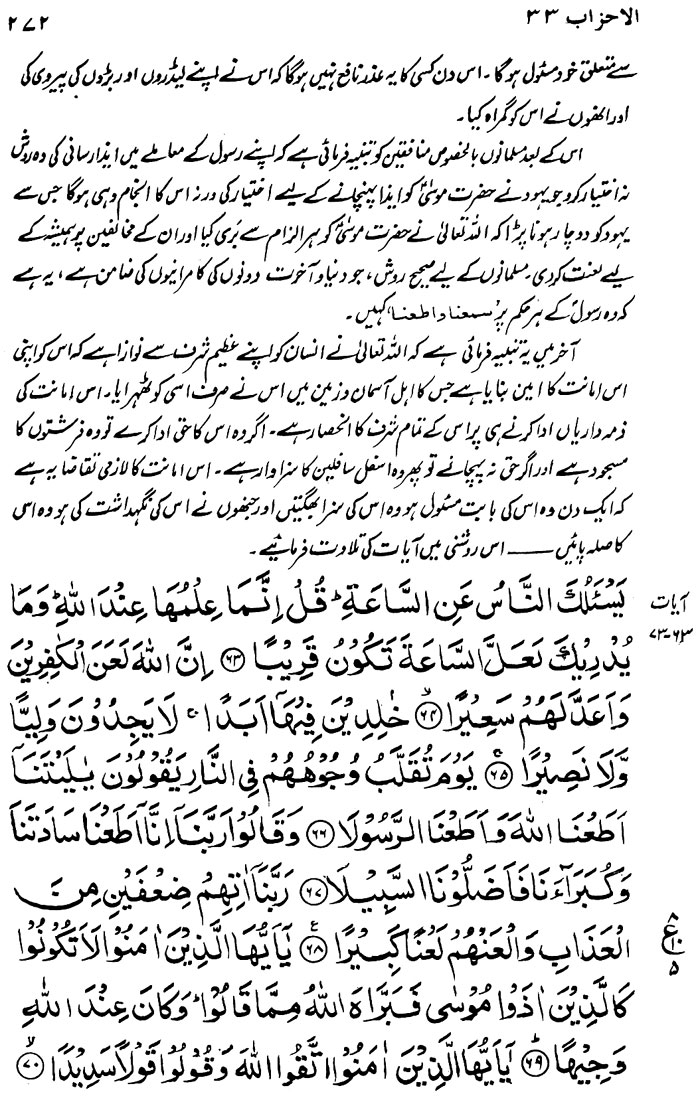 الاحزاب ۳۳
۲۷۲
سے متعلق خود مسئول ہوگا۔ اس دن کسی کا یہ عذر نافع نہیں ہوگا کہ اس نے اپنے لیڈروں اور بڑوں کی پیروی کی
اور انھوں نے اس کو گمراہ کیا۔
اس کے بعد مسلمانوں بالخصوص منافقین کو تنبیہ فرمائی ہے کہ اپنے رسول کے معاملے میں ایذا رسانی کی وہ روش
نہ اختیار کرو جو یہود نے حضرت موسیٰؑ کو ایذا پہنچانے کے لیے اختیار کی ورنہ اس کا انجام وہی ہوگا جس سے
یہود کو دوچار ہونا پڑا کہ اللہ تعالیٰ نے حضرت موسیٰؑ کو ہر الزام سے بَری کیا اور ان کے مخالفین پر ہمیشہ کے
لیے لعنت کر دی۔ مسلمانوں کے لیے صحیح روش، جو دنیا و آخرت دونوں کی کامرانیوں کی ضامن ہے، یہ ہے
کہ وہ رسولؐ کے ہر حکم پر 'سمعنا و اطعنا' کہیں۔
آخر میں یہ تنبیہ فرمائی ہے کہ اللہ تعالیٰ نے انسان کو اپنے عظیم شرف سے نوازا ہے کہ اس کو اپنی
اس امانت کا امین بنایا ہے جس کا اہل آسمان و زمین میں اس نے صرف اسی کو ٹھہرایا۔ اس امانت کی
ذمہ داریاں ادا کرنے ہی پر اس کے تمام شرف کا انحصار ہے۔ اگر وہ اس کا حق ادا کرے تو وہ فرشتوں کا
مسجود ہے اور اگر حق نہ پہچانے تو پھر وہ اسفل سافلین کا سزاوار ہے۔ اس امانت کا لازمی تقاضا یہ ہے
کہ ایک دن وہ اس کی بابت مسئول ہو وہ اس کی سزا بھگتیں اور جنھوں نے اس کی نگہداشت کی ہو وہ اس
کا صلہ پائیں —— اس روشنی میں آیات کی تلاوت فرمائیے۔
آیات
۶۳-۷۳
يَسْـَٔلُكَ النَّاسُ عَنِ السَّاعَةِ ؕ قُلْ اِنَّمَا عِلْمُهَا عِنْدَ اللّٰهِ ؕ وَمَا
يُدْرِيْكَ لَعَلَّ السَّاعَةَ تَكُوْنُ قَرِيْبًا ﴿۶۳﴾ اِنَّ اللّٰهَ لَعَنَ الْكٰفِرِيْنَ
وَاَعَدَّ لَهُمْ سَعِيْرًا ﴿۶۴﴾ خٰلِدِيْنَ فِيْهَآ اَبَدًا ۚ لَا يَجِدُوْنَ وَلِيًّا
وَّلَا نَصِيْرًا ﴿۶۵﴾ يَوْمَ تُقَلَّبُ وُجُوْهُهُمْ فِي النَّارِ يَقُوْلُوْنَ يٰلَيْتَنَآ
اَطَعْنَا اللّٰهَ وَاَطَعْنَا الرَّسُوْلَا ﴿۶۶﴾ وَقَالُوْا رَبَّنَآ اِنَّآ اَطَعْنَا سَادَتَنَا
وَكُبَرَآءَنَا فَاَضَلُّوْنَا السَّبِيْلَا ﴿۶۷﴾ رَبَّنَآ اٰتِهِمْ ضِعْفَيْنِ مِنَ
الْعَذَابِ وَالْعَنْهُمْ لَعْنًا كَبِيْرًا ﴿۶۸﴾ يٰٓاَيُّهَا الَّذِيْنَ اٰمَنُوْا لَا تَكُوْنُوْا
۸ ع ۱۰ ۵
كَالَّذِيْنَ اٰذَوْا مُوْسٰى فَبَرَّاَهُ اللّٰهُ مِمَّا قَالُوْا ؕ وَكَانَ عِنْدَ اللّٰهِ
وَجِيْهًا ﴿۶۹﴾ يٰٓاَيُّهَا الَّذِيْنَ اٰمَنُوا اتَّقُوا اللّٰهَ وَقُوْلُوْا قَوْلًا سَدِيْدًا ﴿۷۰﴾